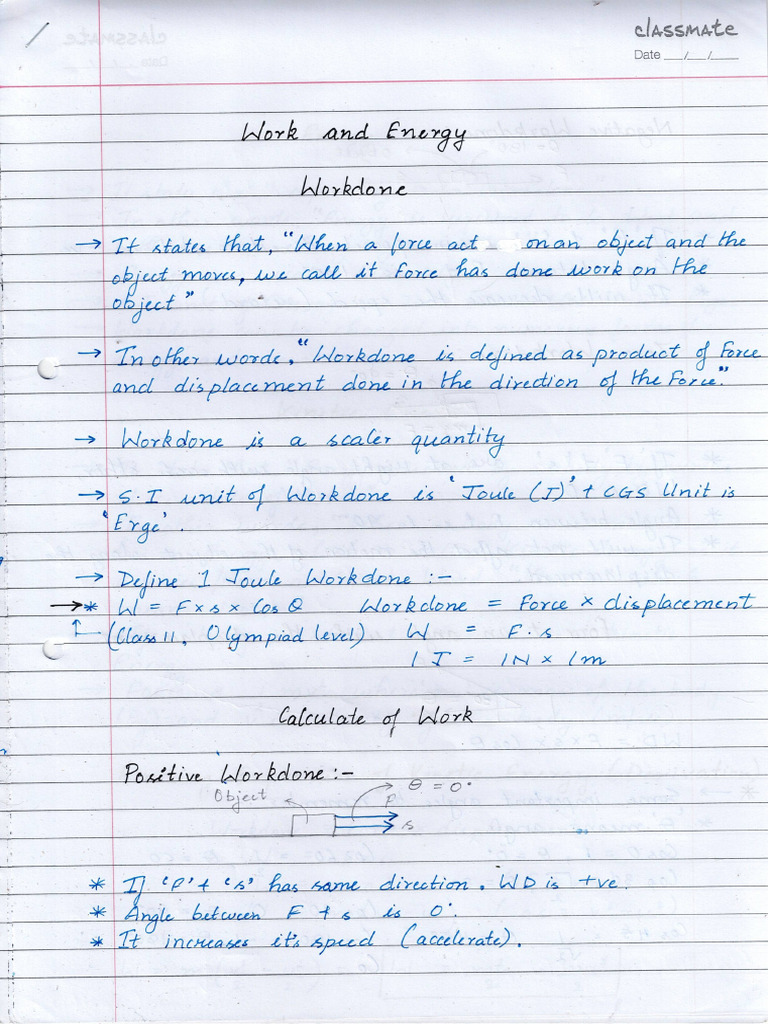 classmate
Date __/__/____
Work and Energy
Workdone
→ It states that, "When a force act on an object and the
object moves, we call it force has done work on the
object"
→ In other words, "Workdone is defined as product of Force
and displacement done in the direction of the Force."
→ Workdone is a scaler quantity
→ S.I unit of Workdone is 'Joule (J)' + CGS Unit is
'Erge'.
→ Define 1 Joule Workdone :-
→ * W = F×s× Cos θ Workdone = Force × displacement
(Class 11, Olympiad level) W = F.s
1 J = 1N × 1m
Calculate of Work
Positive Workdone :-
Object θ = 0°
F
s
* If 'F' + 's' has same direction. WD is +ve.
* Angle between F + s is 0°.
* It increases it's speed (accelerate).